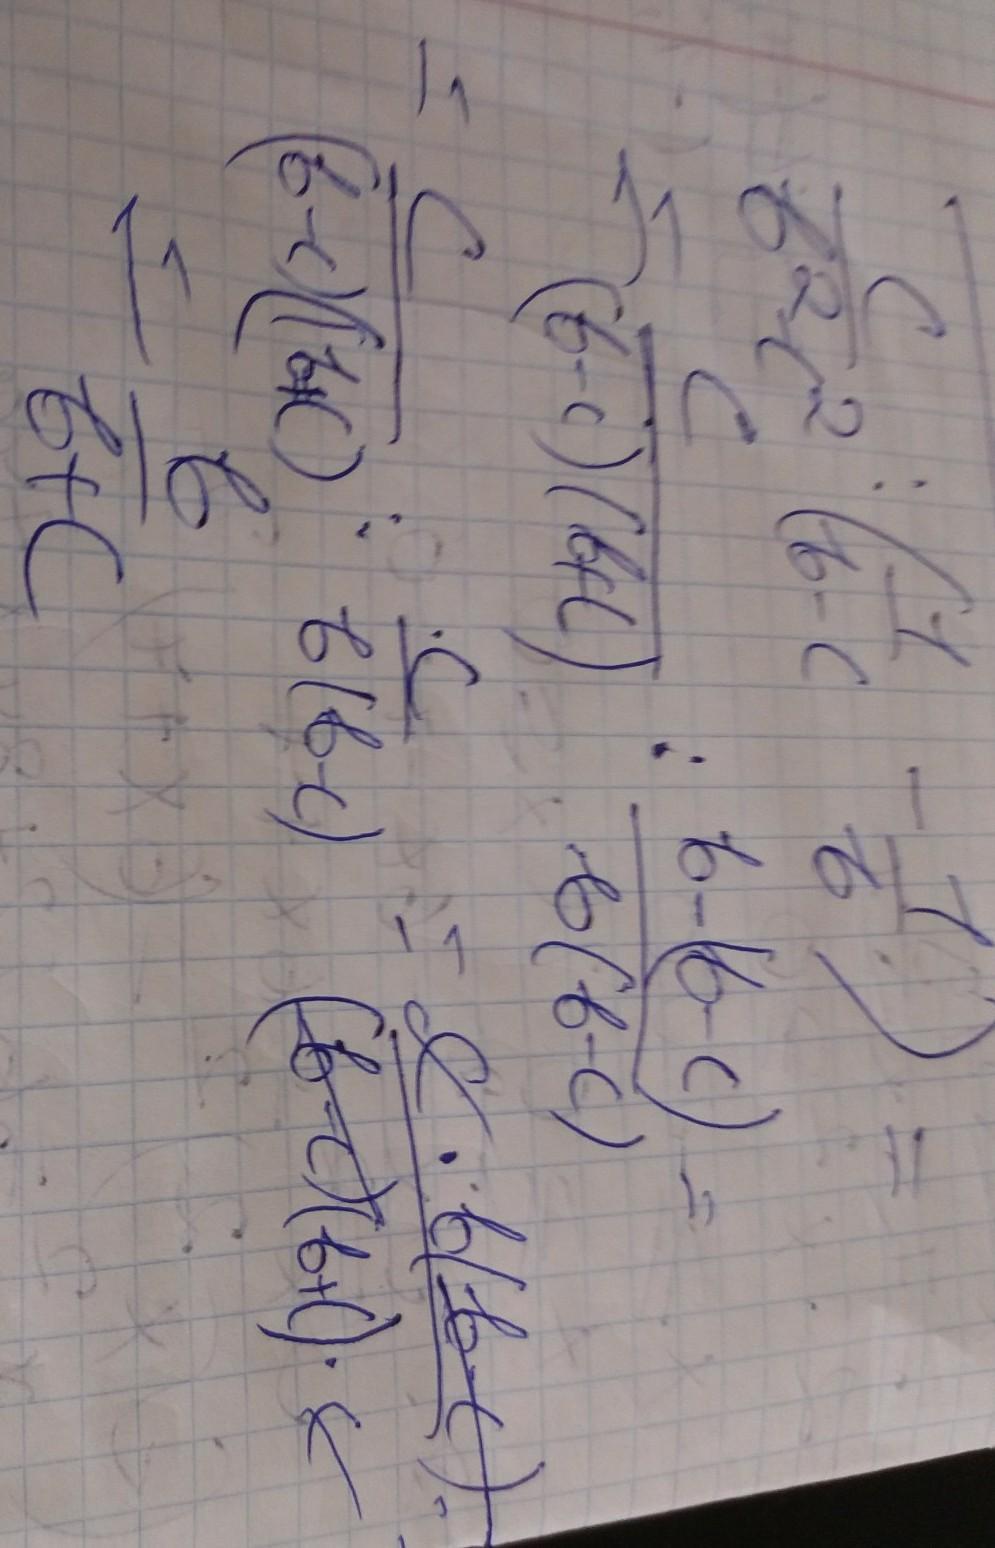 c/(b²-c²) : (1/(b-c) - 1/b) =
= c/((b-c)(b+c)) : (b-(b-c))/(b(b-c)) =
= c/((b-c)(b+c)) : c/(b(b-c)) = (c · b(b-c))/((b-c)(b+c) · c) =
= b/(b+c)